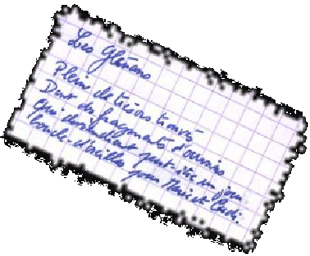 Les Glénans
Plein de trésors trouvés
Dont des fragments d'oursins
Qui deviendront peut-être un jour
boucle d'oreilles pour et